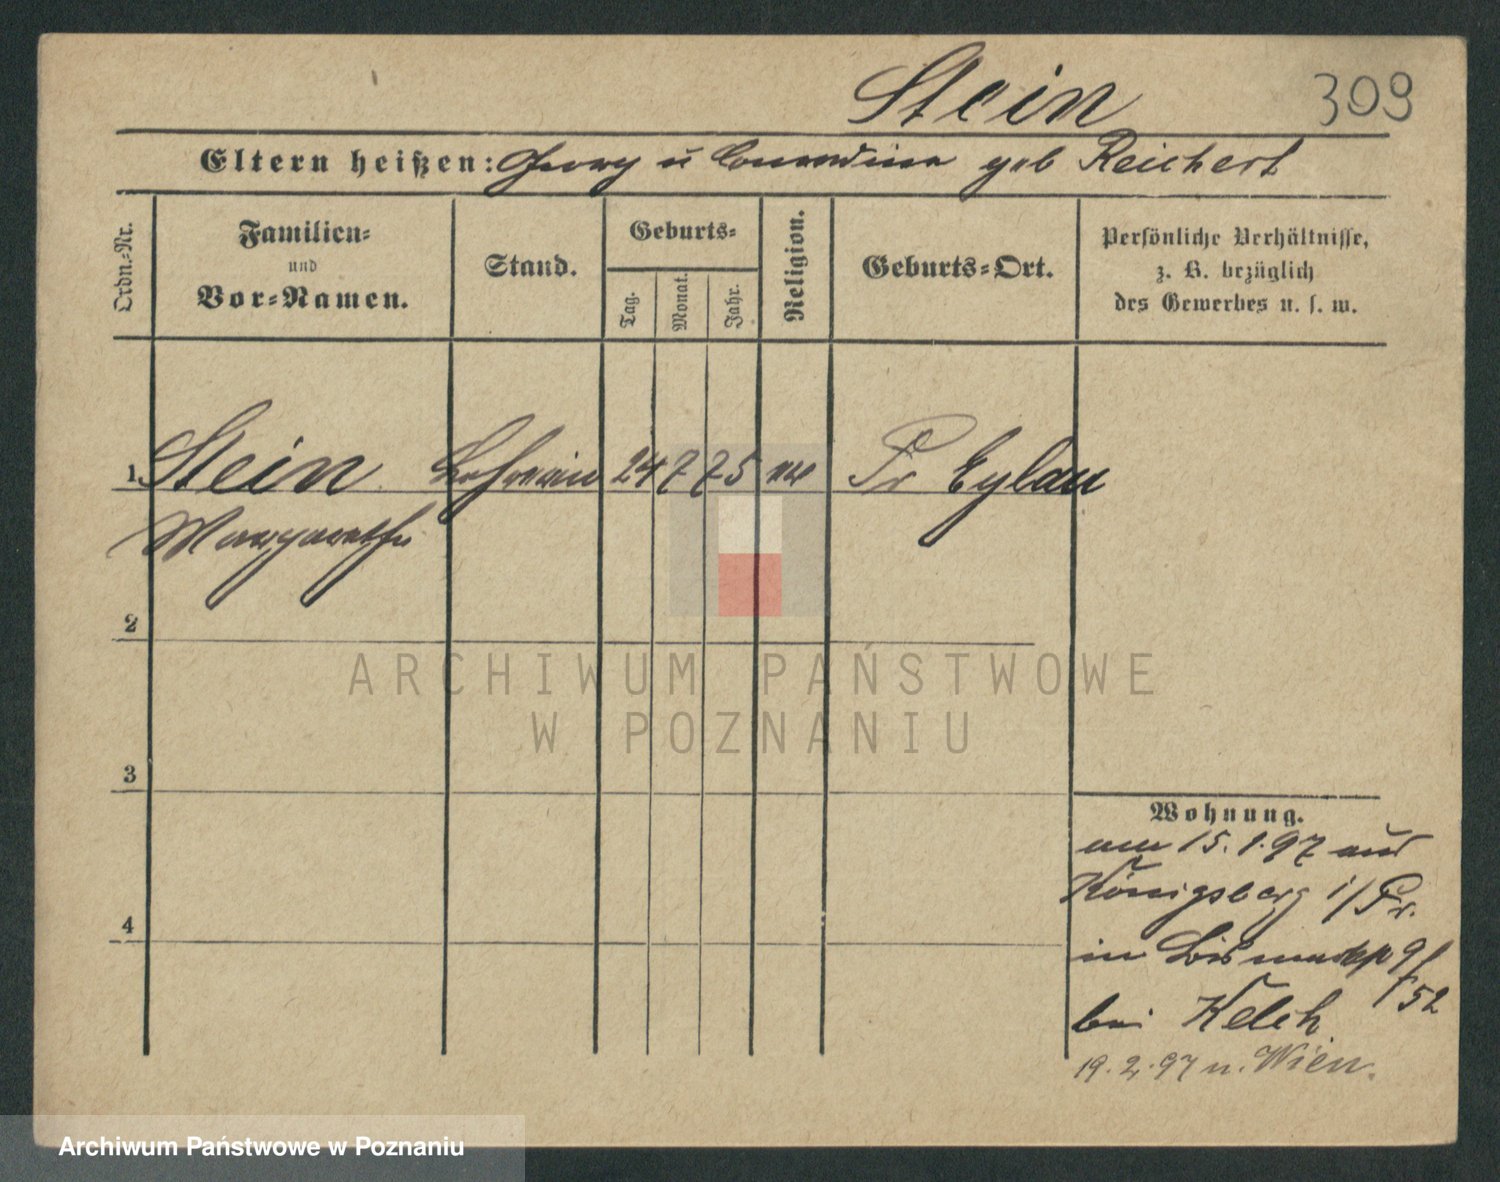 Stein 309
Eltern heißen: Georg u geb Reichert
Ordn.-Nr.
Familien-
und
Vor-Namen.
Stand.
Geburts-
Tag.
Monat.
Jahr.
Religion.
Geburts-Ort.
Persönliche Verhältnisse,
z. B. bezüglich
des Gewerbes u. s. w.
1. Stein Lehrerin 24 7 75 Pr Eylau
Margarethe
2
3
4
Wohnung.
am 15.1.97 aus
Königsberg i/Pr.
in 9/52
bei Kelch
19.2.97 n. Wien.
ARCHIWUM PAŃSTWOWE
W POZNANIU
Archiwum Państwowe w Poznaniu